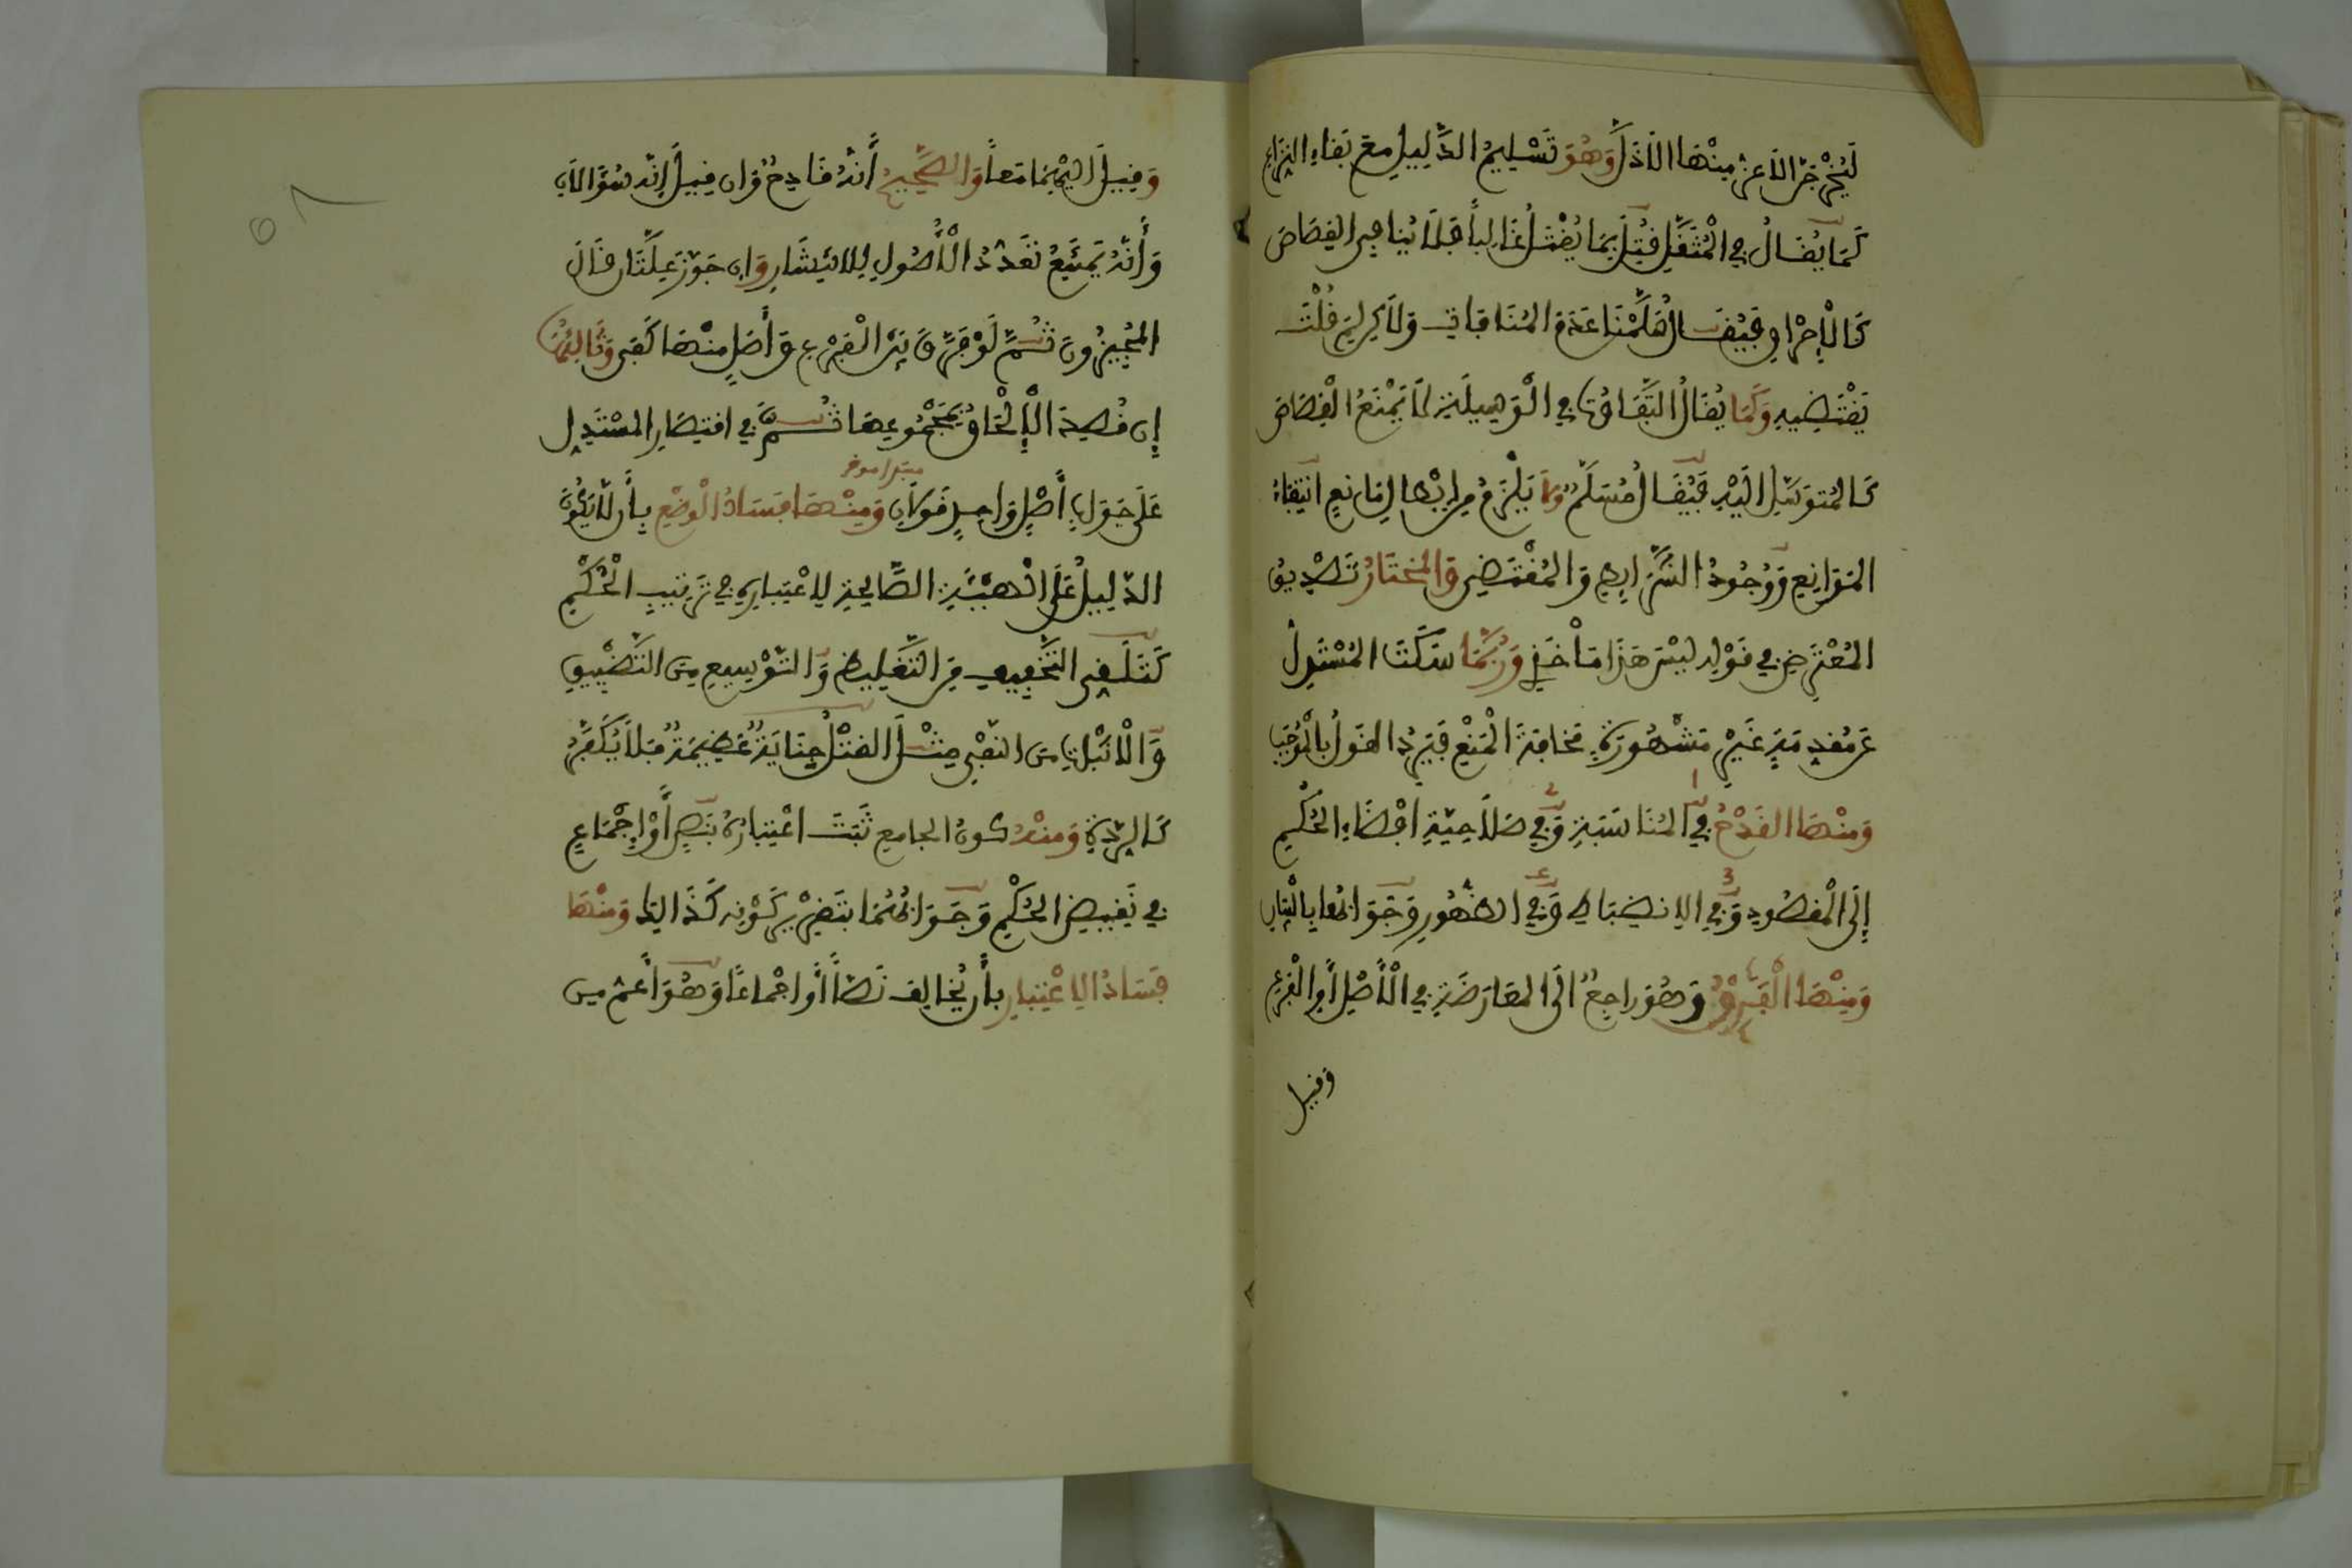 لَيُخْرِجَنَّ الاَعَزُّ مِنْهَا الاَذَلَّ وَهُوَ تَسْلِيمُ الدَّلِيلِ مَعَ بَقَاءِ النِّزَاعِ
كَمَا يُقَالُ فِي الْمُثَقَّلِ قُتِلَ بِمَا يُقْتَلُ غَالِبًا فَلاَ يُنَافِي الْقِصَاصَ
كَالْإِحْرَاقِ فَيُقَالُ سَلَّمْنَا عَدَمَ الْمُنَافَاةِ وَلاَكِنْ لِمَ قُلْتَ
يَقْتَضِيهِ وَكَمَا يُقَالُ التَّفَاوُتُ فِي الْوَسِيلَةِ لاَ يَمْنَعُ الْقِصَاصَ
كَالْمُتَوَسَّلِ إِلَيْهِ فَيُقَالُ مُسَلَّمٌ وَلاَ يَلْزَمُ مِنْ إِبْطَالِ مَانِعٍ انْتِفَاءُ
الْمَوَانِعِ وَوُجُودُ الشَّرَايِطِ وَالْمُقْتَضِي وَالْمُخْتَارُ تَصْدِيقُ
الْمُعْتَرِضِ فِي قَوْلِهِ لَيْسَ هَذَا مَأْخَذِي وَرُبَّمَا سَكَتَ الْمُسْتَدِلُّ
عَنْ مُقَدِّمَةٍ غَيْرِ مَشْهُورَةٍ مَخَافَةَ الْمَنْعِ فَيَرِدُ الْقَوْلُ بِالْمُوجَبِ
وَمِنْهَا الْقَدْحُ فِي الْمُنَاسَبَةِ وَفِي صَلاَحِيَّةِ إِفْضَاءِ الْحُكْمِ
إِلَى الْمَقْصُودِ وَفِي الاِنْضِبَاطِ وَفِي الظُّهُورِ وَجَوَابُهَا بِالْبَيَانِ
وَمِنْهَا الْفَرْقُ وَهُوَ رَاجِعٌ إِلَى الْمُعَارَضَةِ فِي الْأَصْلِ أَوِ الْفَرْعِ
وقيل
وَقِيلَ إِلَيْهِمَا مَعًا وَالصَّحِيحُ أَنَّهُ قَادِحٌ وَإِنْ قِيلَ إِنَّهُ سُؤَالاَنِ
وَأَنَّهُ يَمْتَنِعُ تَعَدُّدُ الْأُصُولِ لِلاِنْتِشَارِ وَإِنْ جَوَّزَ عِلَّتَانِ قَالَ
الْمُجِيزُونَ ثُمَّ لَوْ فَرَّقَ بَيْنَ الْفَرْعِ وَأَصْلٍ مِنْهَا كَفَى وَثَالِثُهَا
إِنْ قُصِدَ الْإِلْحَاقُ بِمَجْمُوعِهَا ثُمَّ فِي اقْتِصَارِ الْمُسْتَدِلِّ
عَلَى جَوَابِ أَصْلٍ وَاحِدٍ قَوْلاَنِ وَمِنْهَا فَسَادُ الْوَضْعِ بِأَن لاَّ يَكُونَ
الدَّلِيلُ عَلَى الْهَيْئَةِ الصَّالِحَةِ لاِعْتِبَارِهِ فِي تَرْتِيبِ الْحُكْمِ
كَتَلَقِّي التَّخْفِيفِ مِنَ التَّغْلِيظِ وَالتَّوْسِيعِ مِنَ التَّضْيِيقِ
وَالْإِثْبَاتِ مِنَ النَّفْيِ مِثْلُ الْقَتْلُ جِنَايَةٌ عَظِيمَةٌ فَلاَ يُكَفَّرُ
كَالرِّدَّةِ وَمِنْهُ كَوْنُ الْجَامِعِ ثَبَتَ اعْتِبَارُهُ بِنَصٍّ أَوْ إِجْمَاعٍ
فِي نَقِيضِ الْحُكْمِ وَجَوَابُهُمَا بِتَقْرِيرِ كَوْنِهِ كَذَالِكَ وَمِنْهَا
فَسَادُ الاِعْتِبَارِ بِأَنْ يُخَالِفَ نَصًّا أَوْ إِجْمَاعًا وَهُوَ أَعَمُّ مِن